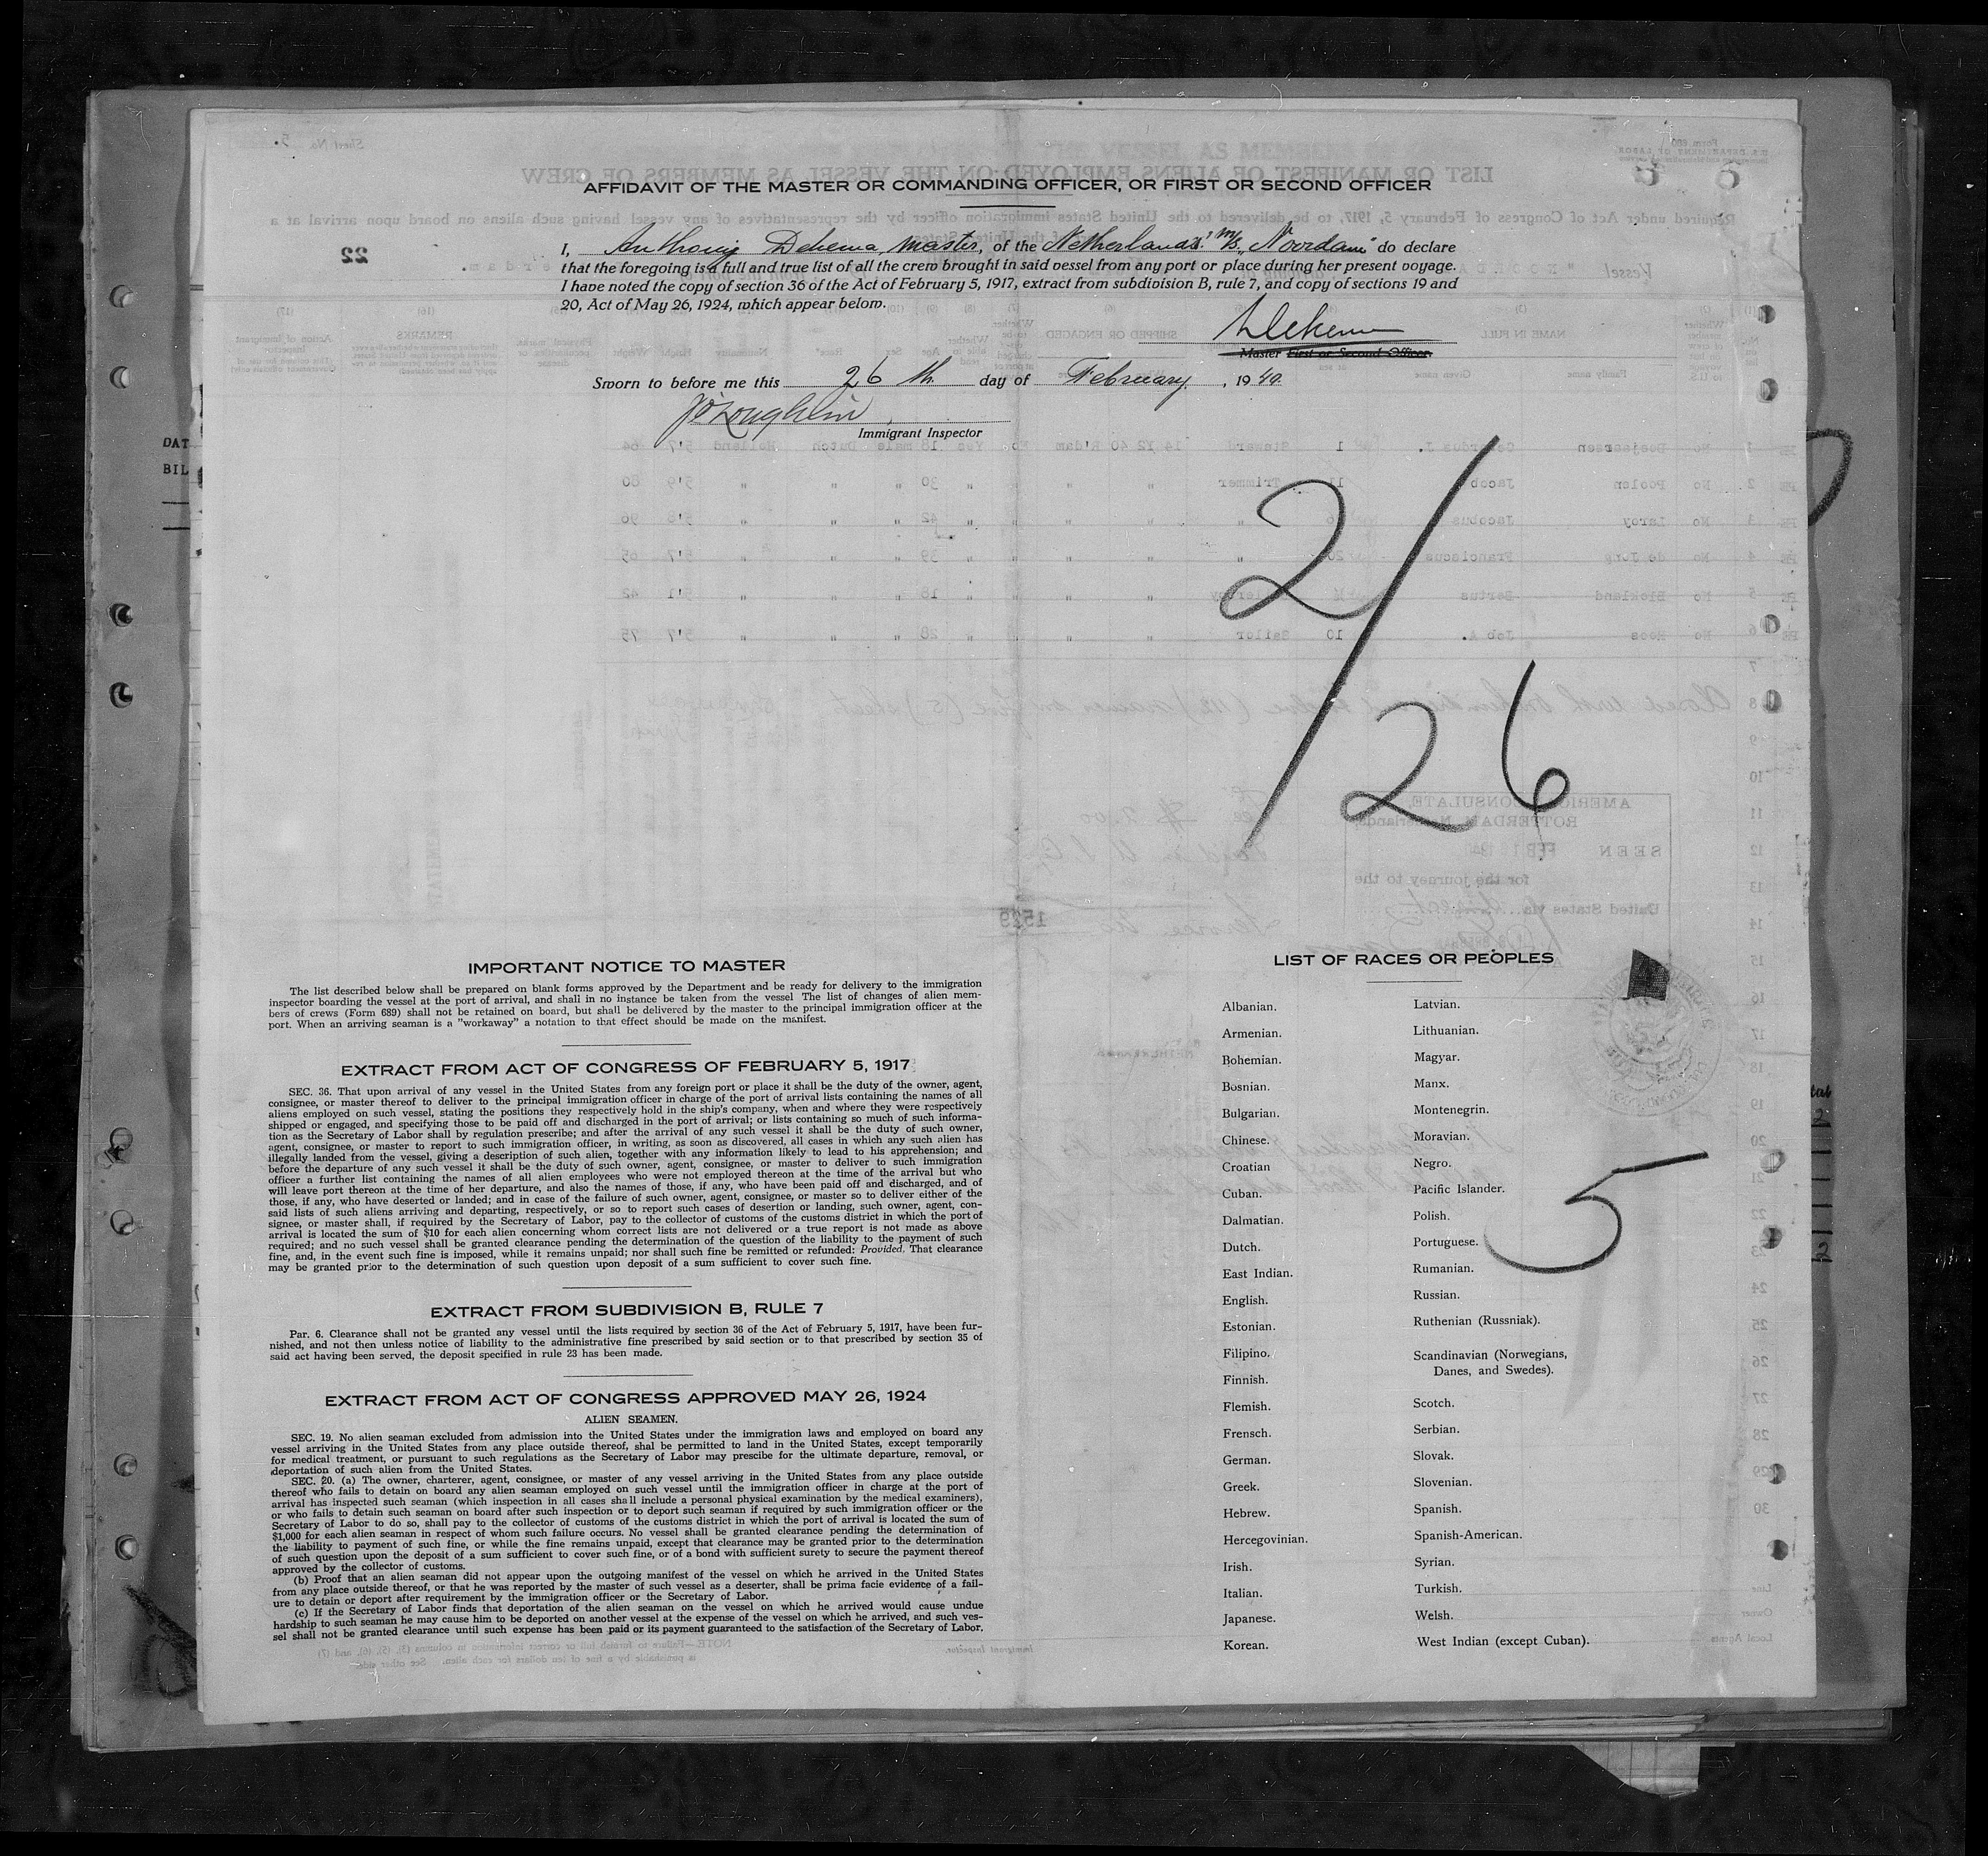 AFFIDAVIT OF THE MASTER OR COMMANDING OFFICER, OR FIRST OR SECOND OFFICER
I, Anthonij Dekema, master, of the Netherlands' m/s "Noordam" do declare
that the foregoing is a full and true list of all the crew brought in said vessel from any port or place during her present voyage.
I have noted the copy of section 36 of the Act of February 5, 1917, extract from subdivision B, rule 7, and copy of sections 19 and
20, Act of May 26, 1924, which appear below.
Dekema
Master First or Second Officer.
Sworn to before me this 26 th day of February, 1940.
J O'Loughlin
Immigrant Inspector
2/26
IMPORTANT NOTICE TO MASTER
The list described below shall be prepared on blank forms approved by the Department and be ready for delivery to the immigration
inspector boarding the vessel at the port of arrival, and shall in no instance be taken from the vessel The list of changes of alien mem-
bers of crews (Form 689) shall not be retained on board, but shall be delivered by the master to the principal immigration officer at the
port. When an arriving seaman is a "workaway" a notation to that effect should be made on the manifest.
EXTRACT FROM ACT OF CONGRESS OF FEBRUARY 5, 1917
SEC. 36. That upon arrival of any vessel in the United States from any foreign port or place it shall be the duty of the owner, agent,
consignee, or master thereof to deliver to the principal immigration officer in charge of the port of arrival lists containing the names of all
aliens employed on such vessel, stating the positions they respectively hold in the ship's company, when and where they were respectively
shipped or engaged, and specifying those to be paid off and discharged in the port of arrival; or lists containing so much of such informa-
tion as the Secretary of Labor shall by regulation prescribe; and after the arrival of any such vessel it shall be the duty of such owner,
agent, consignee, or master to report to such immigration officer, in writing, as soon as discovered, all cases in which any such alien has
illegally landed from the vessel, giving a description of such alien, together with any information likely to lead to his apprehension; and
before the departure of any such vessel it shall be the duty of such owner, agent, consignee, or master to deliver to such immigration
officer a further list containing the names of all alien employees who were not employed thereon at the time of the arrival but who
will leave port thereon at the time of her departure, and also the names of those, if any, who have been paid off and discharged, and of
those, if any, who have deserted or landed; and in case of the failure of such owner, agent, consignee, or master so to deliver either of the
said lists of such aliens arriving and departing, respectively, or so to report such cases of desertion or landing, such owner, agent, con-
signee, or master shall, if required by the Secretary of Labor, pay to the collector of customs of the customs district in which the port of
arrival is located the sum of $10 for each alien concerning whom correct lists are not delivered or a true report is not made as above
required; and no such vessel shall be granted clearance pending the determination of the question of the liability to the payment of such
fine, and, in the event such fine is imposed, while it remains unpaid; nor shall such fine be remitted or refunded: Provided. That clearance
may be granted prior to the determination of such question upon deposit of a sum sufficient to cover such fine.
EXTRACT FROM SUBDIVISION B, RULE 7
Par. 6. Clearance shall not be granted any vessel until the lists required by section 36 of the Act of February 5, 1917, have been fur-
nished, and not then unless notice of liability to the administrative fine prescribed by said section or to that prescribed by section 35 of
said act having been served, the deposit specified in rule 23 has been made.
EXTRACT FROM ACT OF CONGRESS APPROVED MAY 26, 1924
ALIEN SEAMEN.
SEC. 19. No alien seaman excluded from admission into the United States under the immigration laws and employed on board any
vessel arriving in the United States from any place outside thereof, shal be permitted to land in the United States, except temporarily
for medical treatment, or pursuant to such regulations as the Secretary of Labor may prescibe for the ultimate departure, removal, or
deportation of such alien from the United States.
SEC. 20. (a) The owner, charterer, agent, consignee, or master of any vessel arriving in the United States from any place outside
thereof who fails to detain on board any alien seaman employed on such vessel until the immigration officer in charge at the port of
arrival has inspected such seaman (which inspection in all cases shall include a personal physical examination by the medical examiners),
or who fails to detain such seaman on board after such inspection or to deport such seaman if required by such immigration officer or the
Secretary of Labor to do so, shall pay to the collector of customs of the customs district in which the port of arrival is located the sum of
$1,000 for each alien seaman in respect of whom such failure occurs. No vessel shall be granted clearance pending the determination of
the liability to payment of such fine, or while the fine remains unpaid, except that clearance may be granted prior to the determination
of such question upon the deposit of a sum sufficient to cover such fine, or of a bond with sufficient surety to secure the payment thereof
approved by the collector of customs.
(b) Proof that an alien seaman did not appear upon the outgoing manifest of the vessel on which he arrived in the United States
from any place outside thereof, or that he was reported by the master of such vessel as a deserter, shall be prima facie evidence of a fail-
ure to detain or deport after requirement by the immigration officer or the Secretary of Labor.
(c) If the Secretary of Labor finds that deportation of the alien seaman on the vessel on which he arrived would cause undue
hardship to such seaman he may cause him to be deported on another vessel at the expense of the vessel on which he arrived, and such ves-
sel shall not be granted clearance until such expense has been paid or its payment guaranteed to the satisfaction of the Secretary of Labor.
LIST OF RACES OR PEOPLES
Albanian.
Armenian.
Bohemian.
Bosnian.
Bulgarian.
Chinese.
Croatian
Cuban.
Dalmatian.
Dutch.
East Indian.
English.
Estonian.
Filipino.
Finnish.
Flemish.
Frensch.
German.
Greek.
Hebrew.
Hercegovinian.
Irish.
Italian.
Japanese.
Korean.
Latvian.
Lithuanian.
Magyar.
Manx.
Montenegrin.
Moravian.
Negro.
Pacific Islander.
Polish.
Portuguese.
Rumanian.
Russian.
Ruthenian (Russniak).
Scandinavian (Norwegians,
Danes, and Swedes).
Scotch.
Serbian.
Slovak.
Slovenian.
Spanish.
Spanish-American.
Syrian.
Turkish.
Welsh.
West Indian (except Cuban).
5
DAT
BIL